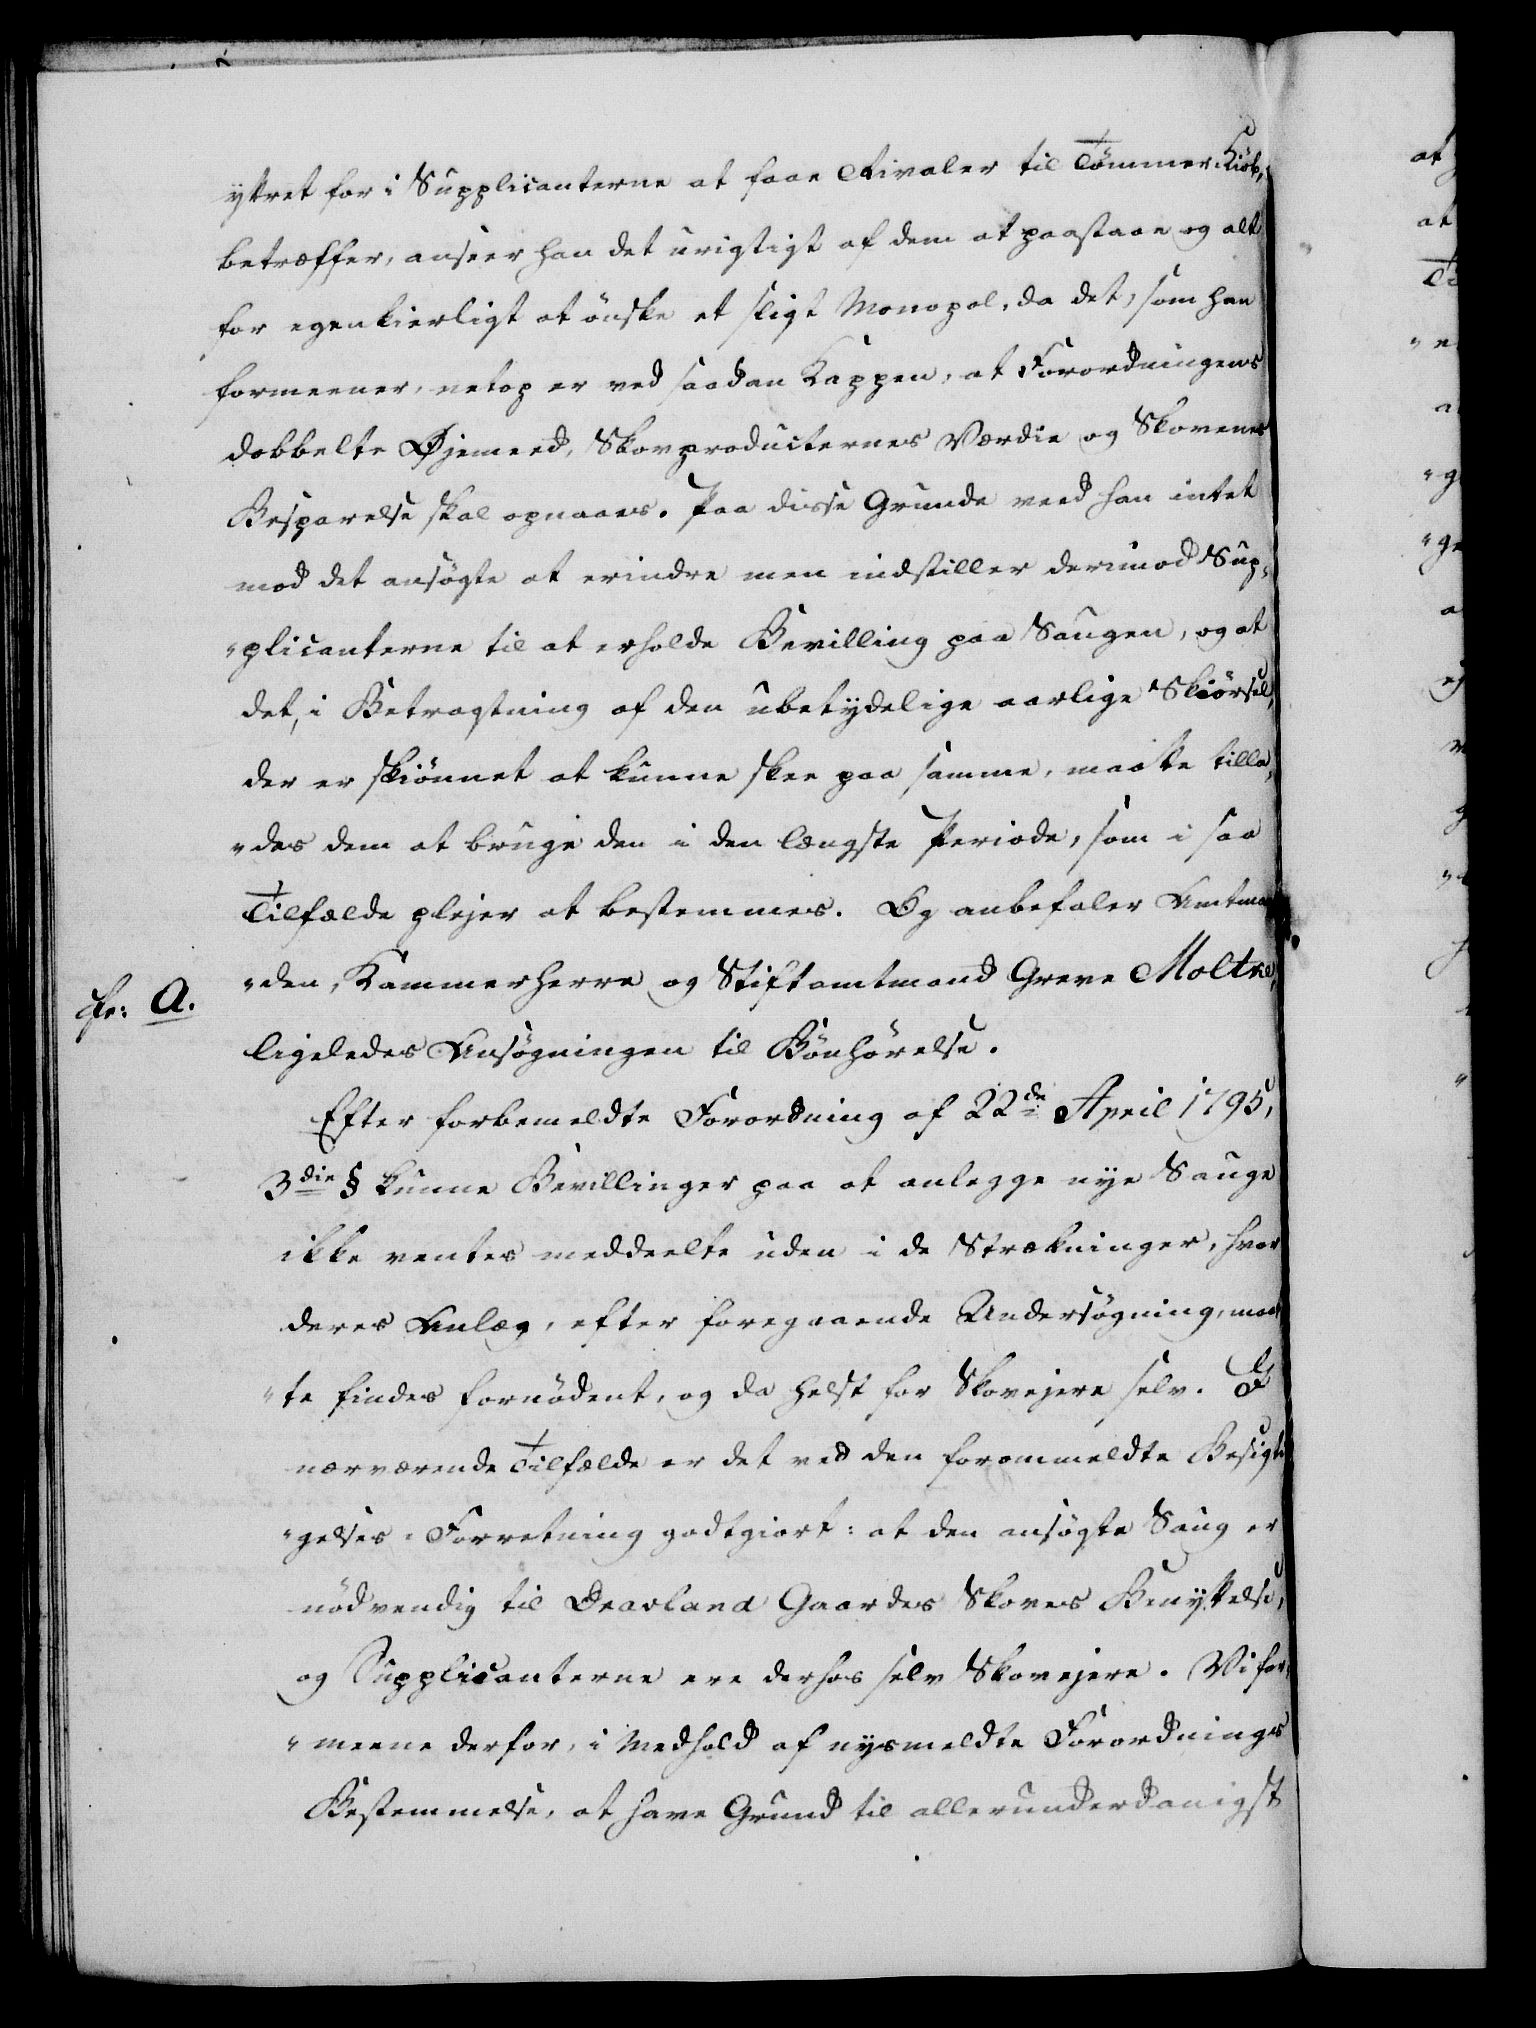 yttret for i Supplicanterne at faae Rivaler til Tömmer-Kiöb,
betræffer, anseer han det urigtigt af dem at paastaae og alt
for egenkierligt at önske et sligt Monopol, da det, som han
formeener, netop er ved saadan Kappen, at Forordningens
dobbelte Øjemeed, Skovproducternes Værdie og Skovenes
Besparelse skal opnaaes. Paa disse Grunde veed han intet
mod det ansögte at erindre men indstiller derimod Sup-
"plicanterne til at erholde Bevilling paa Saugen, og at
det, i Betragtning af den ubetydelige aarlige Skiörsel,
der er skiönnet at kunne skee paa samme, maatte tilla-
"des dem at bruge den i den længste Periode, som i saa
Tilfælde plejer at bestemmes. Og anbefaler Amtman-
"den, Kammerherre og Stiftamtmand Greve Moltke,
cfr: A.
ligeledes Ansögningen til Bönhörelse.
Efter forbemeldte Forordning af 22de April 1795,
3die § kunne Bevillinger paa at anlegge nye Sauge
ikke ventes meddeelte uden i de Strækninger, hvor
deres Anlæg, efter foregaaende Undersögning, maat-
"te findes fornödent, og da helst for Skovejere selv. I
nærværende Tilfælde er det ved den forommeldte Besigti-
"gelses-Forretning godtgiort: at den ansögte Saug er
nödvendig til Dravland Gaardes Skoves Benyttelse,
og Supplicanterne ere derhos selv Skovejere. Vi for-
"meene derfor, i Medhold af nysmeldte Forordnings
Bestemmelse, at have Grund til allerunderdanigst